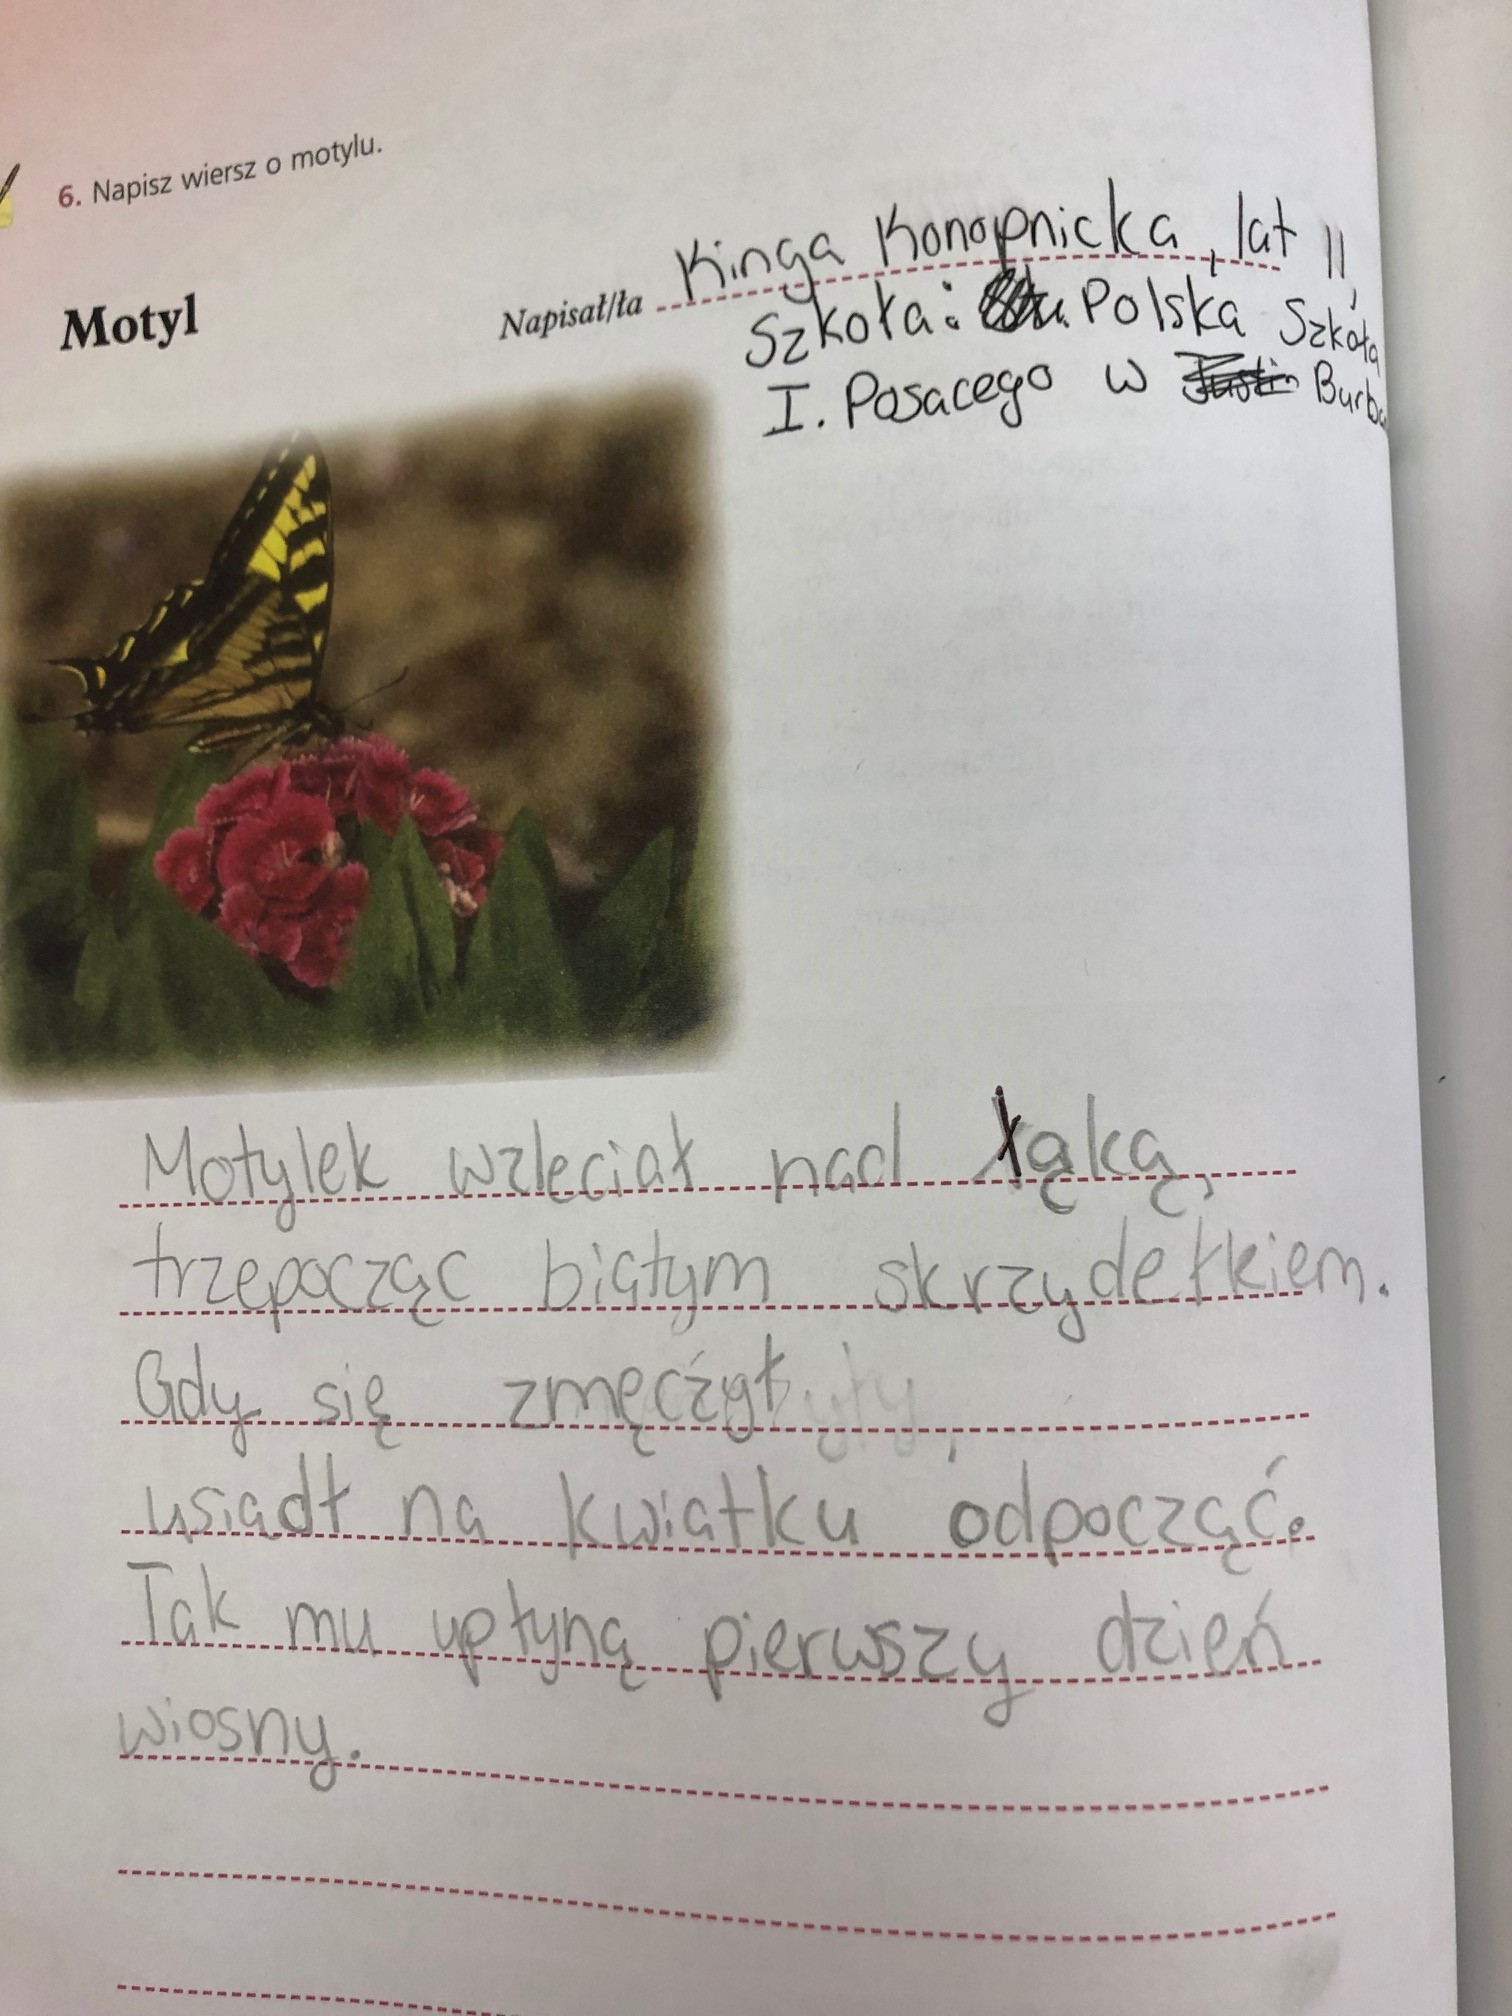 6. Napisz wiersz o motylu.
Motyl
Napisał/ła Kinga Konopnicka, lat 11,
Szkoła: Polska Szkoła
I. Posacego w Burba
Motylek wzleciał nad łąką,
trzepocząc białym skrzydełkiem.
Gdy się zmęczył,
usiadł na kwiatku odpocząć.
Tak mu upłyną pierwszy dzień
wiosny.